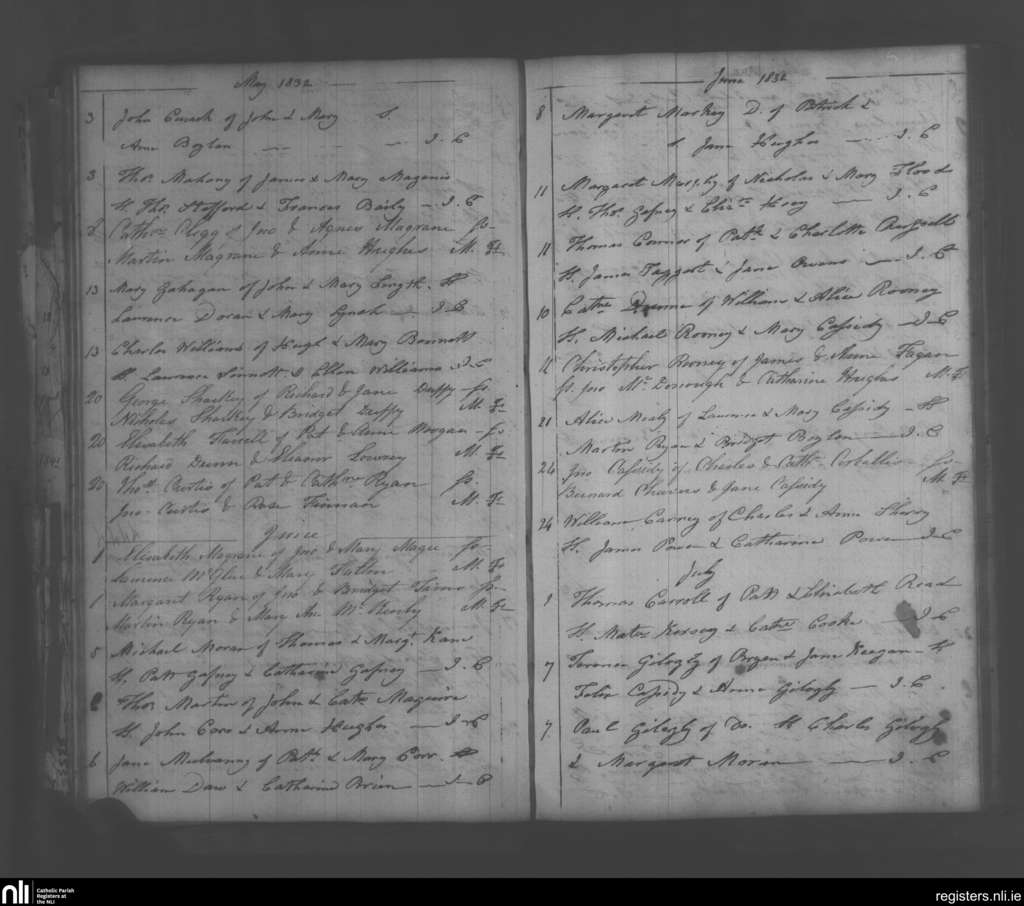 May 1832
3 John Cusack of John & Mary S.
Anne Boylan J. C
3 Thos. Mahony of James & Mary Magenis
St. Thos. Stafford & Frances Baily J. C
Cathne Clegg of Jno & Agnes Magrane Sp.
Martin Magrane & Anne Hughes M. Fr
13 Mary Gahagan of John & Mary Smyth. St
Laurence Doran & Mary Lynch J. C
13 Charles Williams of Hugh & Mary Bennett
St. Lawrence Sinnott & Ellen Williams J. C
20 George Sharkey of Richard & Jane Duffy Sp.
Nicholas Sharkey & Bridget Duffy M. Fr
20 Elizabeth Farrell of Pat & Anne Morgan Sp
Richard Dunne & Eleanor Lowrey M. Fr
20 Thos. Curtis of Pat & Cathne Ryan Sp.
Jno Curtis & Rose Finnan M. Fr
June
1 Elizabeth Magrane of Jno & Mary Magee Sp.
Laurence McGlue & Mary M. Fr
1 Margaret Ryan of Jno & Bridget Sp.
Martin Ryan & Mary Ann Mc M. Fr
5 Michael Moran of Thomas & Margt. Kane
St. Patt Gafney & Catharine Gafney J. C
Thos Martin of John & Cathe Maguire
St. John Corr & Anne Hughes J. C
6 Jane Mulvanny of Patk. & Mary Corr. St
William Daw & Catharine Brien J. C
June 1832
8 Margaret Markey D. of Patrick &
S Jane Hughes J. C
11 Margaret Murphy of Nicholas & Mary Floods
St. Thos. Gafney & Elizth Hoey J. C
11 Thomas Connor of Patk. & Charlotte
St. James Taggart & Jane Owens J. C
10 Cathe Dunne of William & Alice Rooney
St. Michael Rooney & Mary Cassidy J. C
Christopher Rooney of James & Anne Fagan
Sp. Jno McDonough & Catharine Hughes M. Fr
21 Alice Mealy of Lawrence & Mary Cassidy St
Martin Ryan & Bridget Boylan J. C
24 Jno Cassidy of Charles & Cathe Corballis Sp.
Bernard Chevers & Jane Cassidy M. Fr
24 William Carney of Charles & Anne Sherry
St. James Power & Catharine Power J. C
July
1 Thomas Carroll of Patt & Elizabeth Read
St. Matw Kersey & Cathe Cooke J. C
7 Terence Gilogly of Bryan & Jane Keegan St
Felix Cassidy & Anne Gilogly J. C.
7. Paul Gilogly of Do. St Charles Gilogly
& Margaret Moran J. C
nli
Catholic Parish
Registers at
the NLI
registers.nli.ie